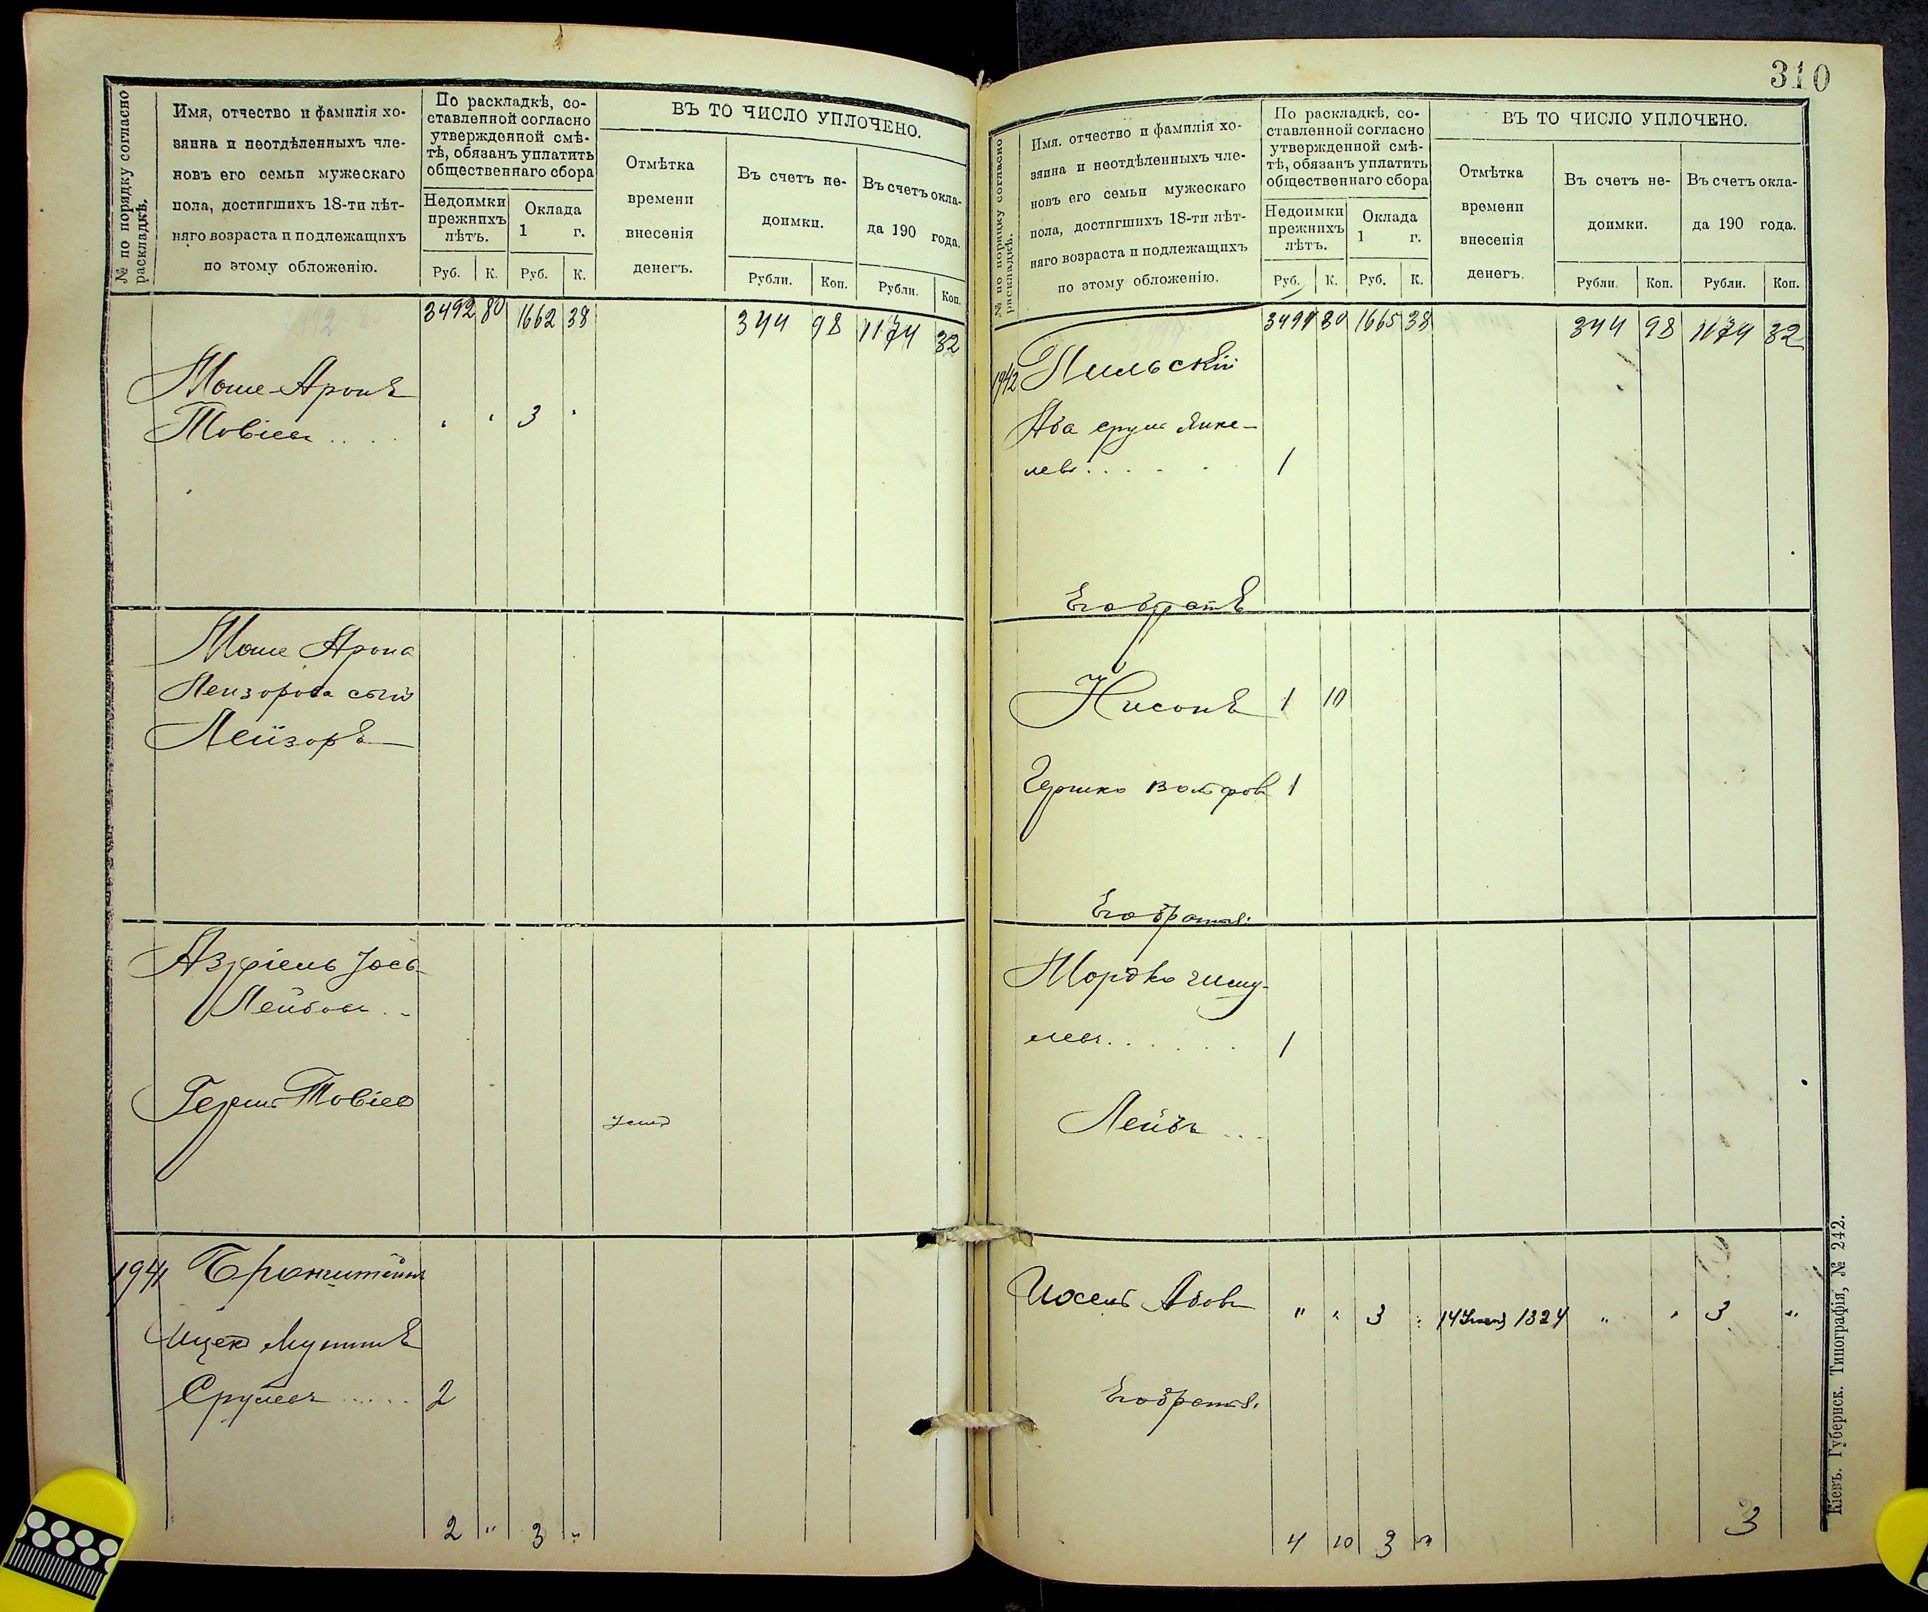 № по порядку согласно раскладкѣ.
Имя, отчество и фамилія хо-
зяина и неотдѣленныхъ чле-
новъ его семьи мужескаго
пола, достигшихъ 18-ти лѣт-
няго возраста и подлежащихъ
по этому обложенію.
По раскладкѣ, со-
ставленной согласно
утвержденной смѣ-
тѣ, обязанъ уплатить
общественнаго сбора
Недоимки
прежнихъ
лѣтъ.
Оклада
1 г.
Руб. К. Руб. К.
ВЪ ТО ЧИСЛО УПЛОЧЕНО.
Отмѣтка
времени
внесенія
денегъ.
Въ счетъ не-
доимки.
Въ счетъ окла-
да 190 года.
Рубли. Коп. Рубли. Коп.
3492 80 1662 38 344 98 1174 32
Моше-Аронъ
Товіевъ . . . . " " 3 "
Моше Арона
Лейзорова сынъ
Лейзоръ
Азріель Іось
Лейбовъ . .
Герш Товіев
1941 Бронштейнъ
Ицек
Срулевъ . . . . . 2
2 " 3 "
310
№ по порядку согласно раскладкѣ.
Имя, отчество и фамилія хо-
зяина и неотдѣленныхъ чле-
новъ его семьи мужескаго
пола, достигшихъ 18-ти лѣт-
няго возраста и подлежащихъ
по этому обложенію.
По раскладкѣ, со-
ставленной согласно
утвержденной смѣ-
тѣ, обязанъ уплатить
общественнаго сбора
Недоимки
прежнихъ
лѣтъ.
Оклада
1 г.
Руб. К. Руб. К.
ВЪ ТО ЧИСЛО УПЛОЧЕНО.
Отмѣтка
времени
внесенія
денегъ.
Въ счетъ не-
доимки.
Въ счетъ окла-
да 190 года.
Рубли. Коп. Рубли. Коп.
3494 80 1665 38 344 98 1174 32
1942 Пильскій
Аба Срул Янке-
левъ . . . . 1
Его братъ
Нисонъ 1 10
Гершко 1
Его братья:
Мордко Шму-
левъ . . . . . . 1
Лейбъ . . .
Иосель Абовъ " " 3 " 14 1324 " " 3 "
Его братья:
4 10 3 " 3
Кіевъ. Губернск. Типографія, № 242.